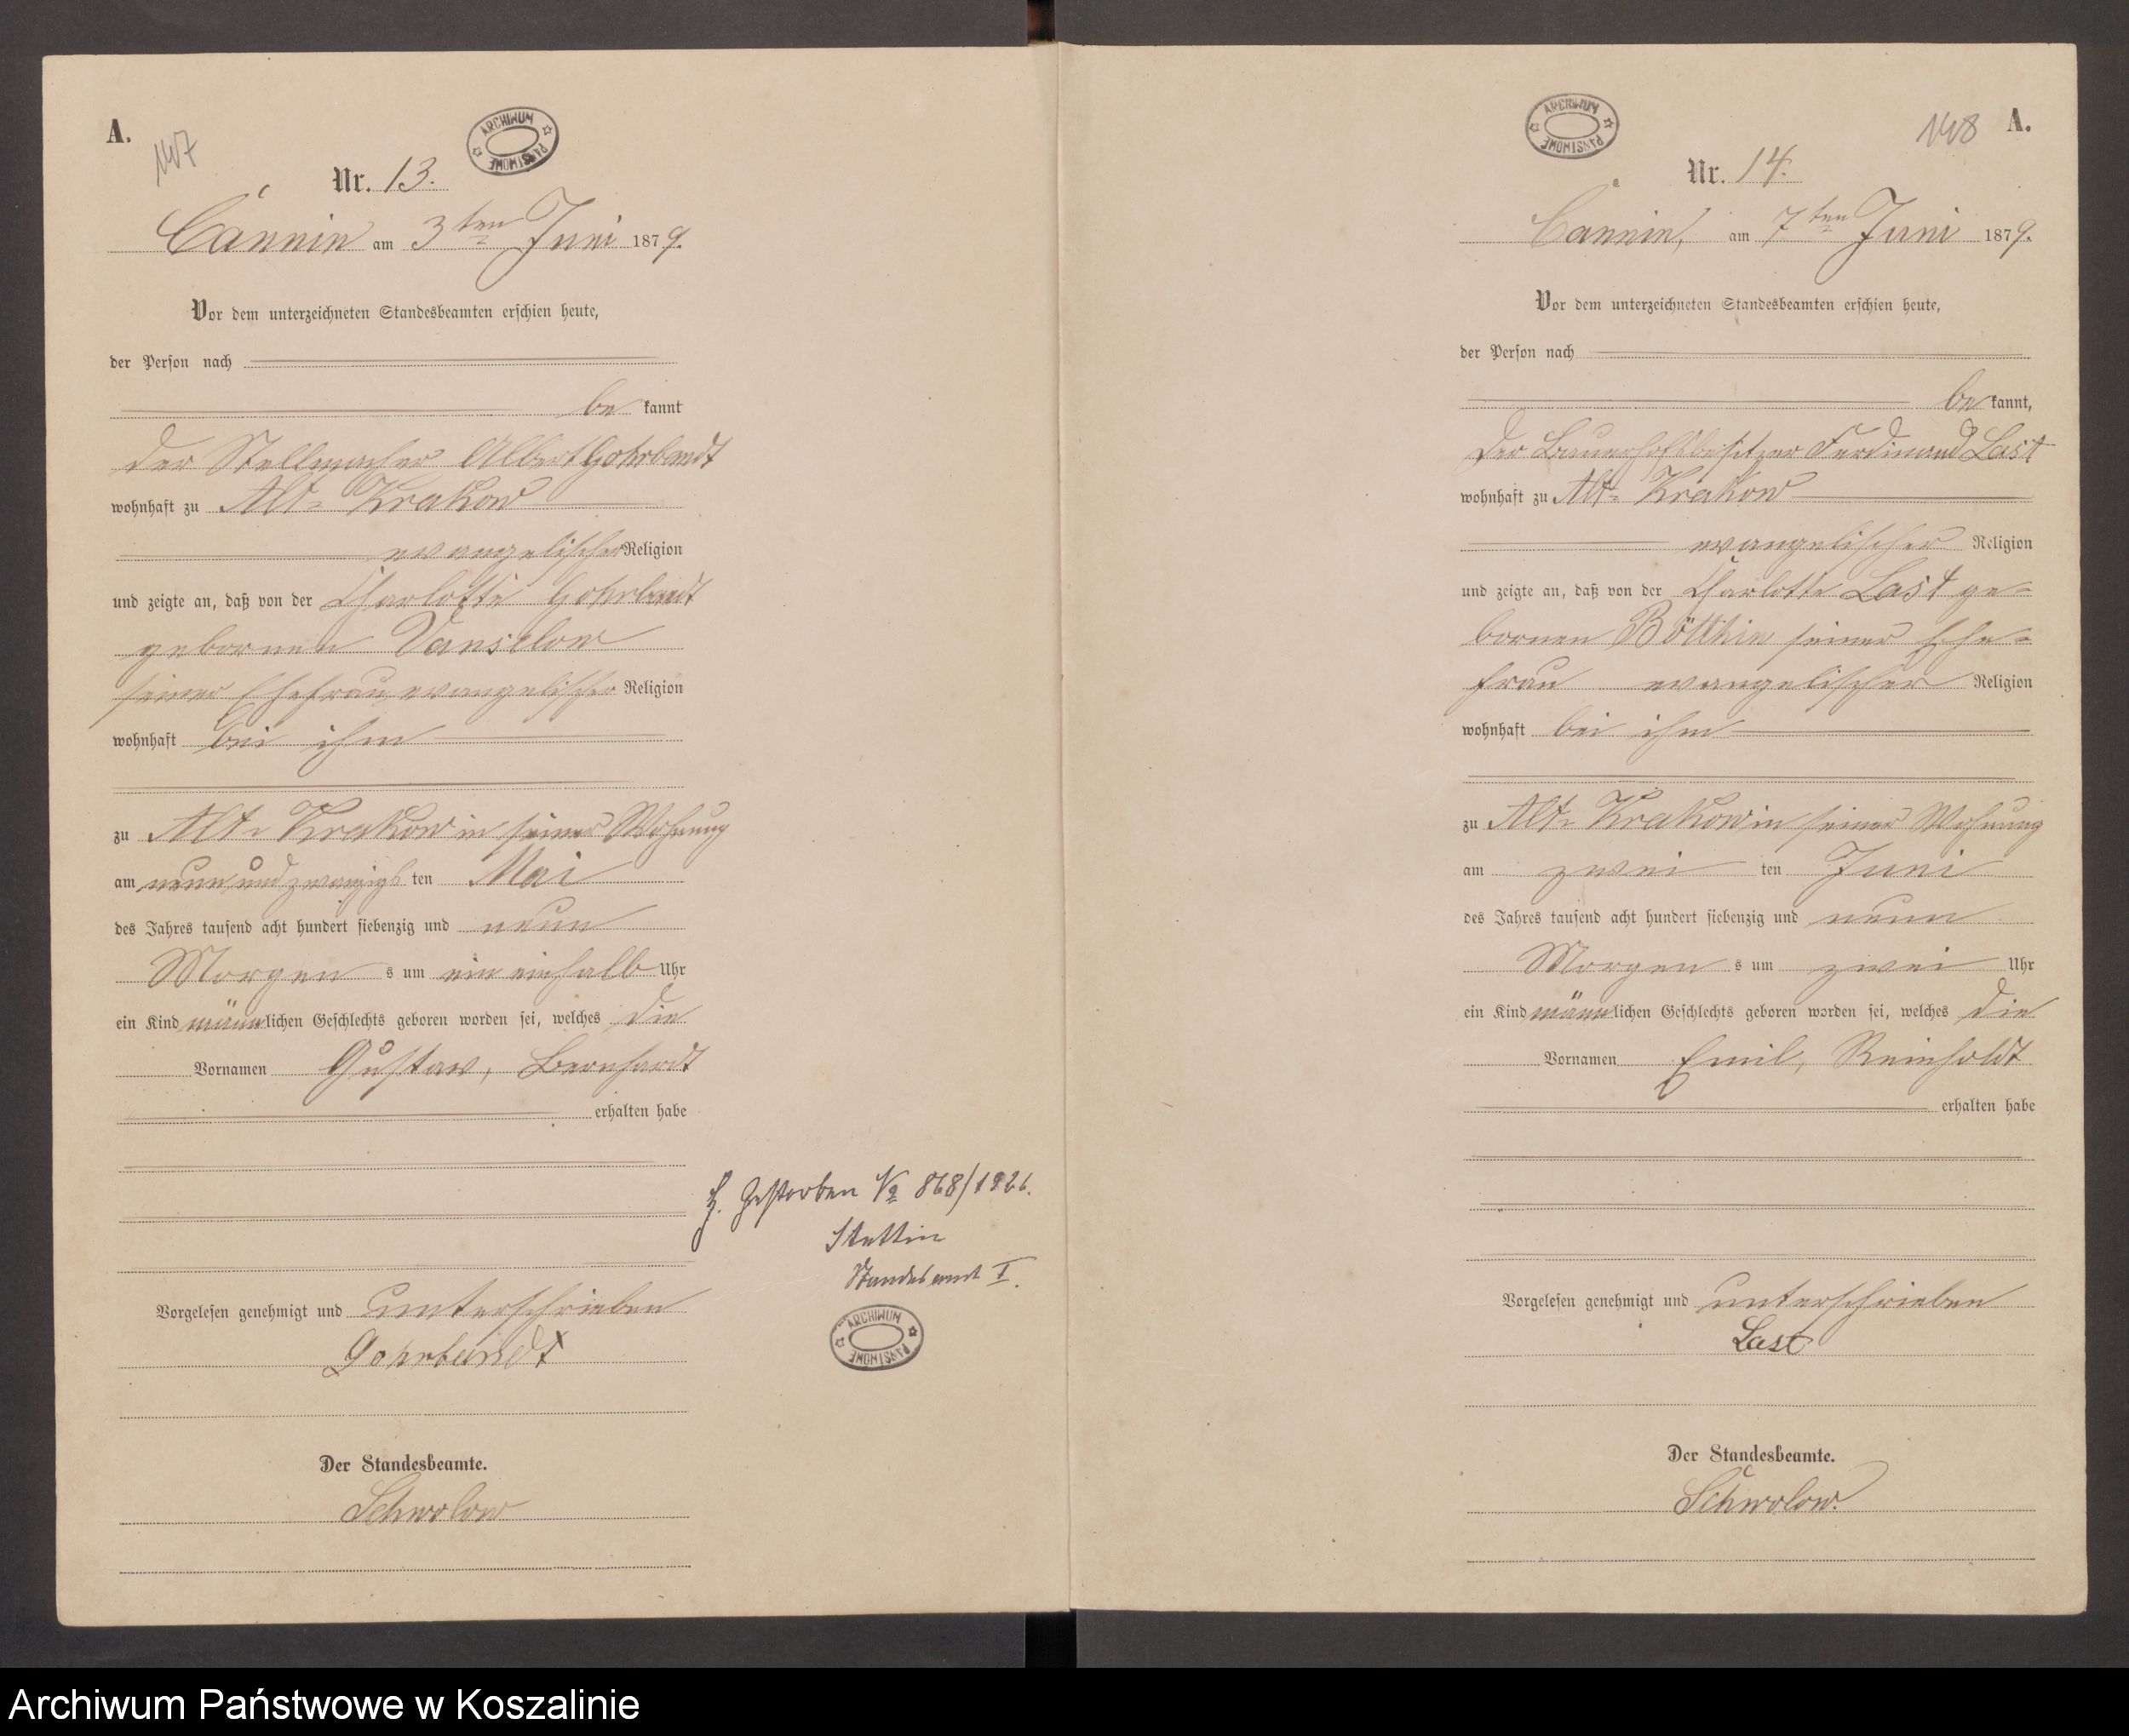 A.
147
ARCHIWUM PAŃSTWOWE
Nr. 13.
Cannin am 3ten Juni 1879.
Vor dem unterzeichneten Standesbeamten erschien heute,
der Person nach
be kannt
der Stellmacher Albert Gohrbandt
wohnhaft zu Alt-Krakow
evangelischer Religion
und zeigte an, daß von der Charlotte Gohrbandt
gebornen Vanselow
seiner Ehefrau evangelischer Religion
wohnhaft bei ihm
zu Alt-Krakow in seiner Wohnung
am neun und zwanzigsten Mai
des Jahres tausend acht hundert siebenzig und neun
Morgens um ein einhalb Uhr
ein Kind männlichen Geschlechts geboren worden sei, welches die
Vornamen Gustav, Bernhardt
erhalten habe
H. Gestorben No 868/1926.
Stettin
Standesamt I.
Vorgelesen genehmigt und unterschrieben
Gohrbandt
ARCHIWUM PAŃSTWOWE
Der Standesbeamte.
Schwolow
ARCHIWUM PAŃSTWOWE
148 A.
Nr. 14.
Cannin, am 7ten Juni 1879.
Vor dem unterzeichneten Standesbeamten erschien heute,
der Person nach
be kannt,
der Bauerhofsbesitzer Ferdinand Last
wohnhaft zu Alt-Krakow
evangelischer Religion
und zeigte an, daß von der Charlotte Last ge-
bornen Bötthin seiner Ehe-
frau evangelischer Religion
wohnhaft bei ihm
zu Alt-Krakow in seiner Wohnung
am zwei ten Juni
des Jahres tausend acht hundert siebenzig und neun
Morgens um zwei Uhr
ein Kind männlichen Geschlechts geboren worden sei, welches die
Vornamen Emil, Reinholdt
erhalten habe
Vorgelesen genehmigt und unterschrieben
Last
Der Standesbeamte.
Schwolow.
Archiwum Państwowe w Koszalinie